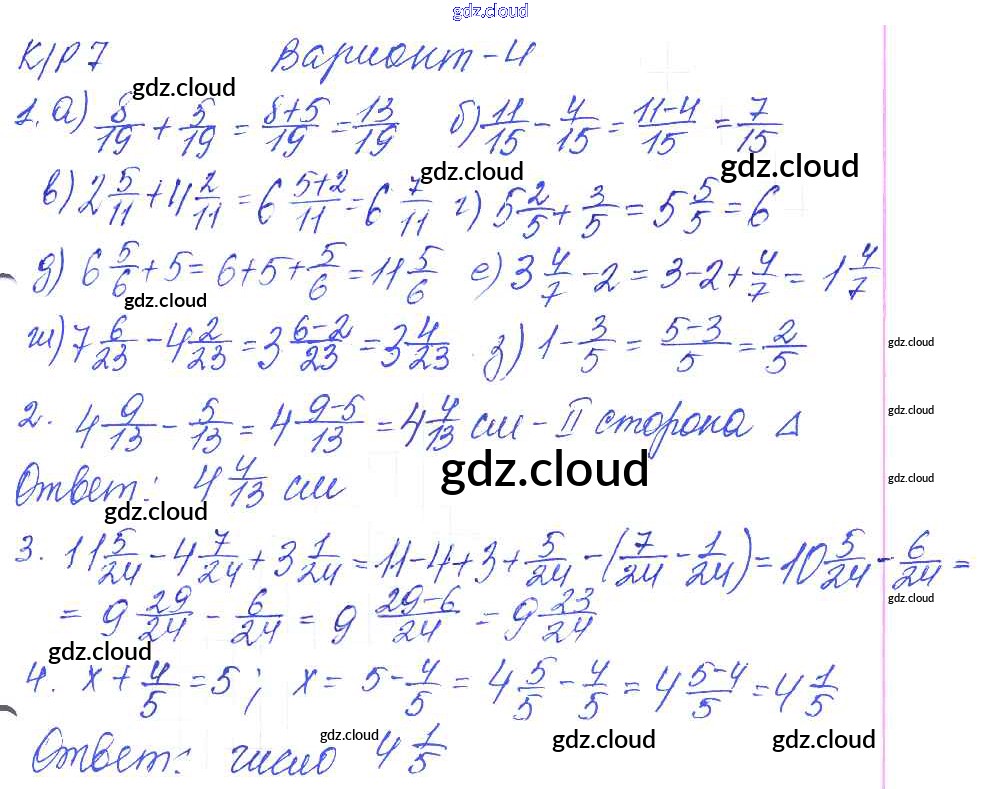 gdz.cloud
К/Р 7 Вариант-4
gdz.cloud
1. а) 8/19 + 5/19 = 8+5/19 = 13/19 б) 11/15 - 4/15 = 11-4/15 = 7/15
gdz.cloud gdz.cloud
в) 2 5/11 + 4 2/11 = 6 5+2/11 = 6 7/11 г) 5 2/5 + 3/5 = 5 5/5 = 6
д) 6 5/6 + 5 = 6+5+ 5/6 = 11 5/6 е) 3 4/7 - 2 = 3-2+ 4/7 = 1 4/7
gdz.cloud
ж) 7 6/23 - 4 2/23 = 3 6-2/23 = 3 4/23 з) 1 - 3/5 = 5-3/5 = 2/5
gdz.cloud
gdz.cloud
2. 4 9/13 - 5/13 = 4 9-5/13 = 4 4/13 см - II сторона Δ
gdz.cloud gdz.cloud
Ответ: 4 4/13 см
gdz.cloud
3. 11 5/24 - 4 7/24 + 3 1/24 = 11-4+3+ 5/24 - (7/24 - 1/24) = 10 5/24 - 6/24 =
gdz.cloud
= 9 29/24 - 6/24 = 9 29-6/24 = 9 23/24
gdz.cloud
4. x + 4/5 = 5; x = 5 - 4/5 = 4 5/5 - 4/5 = 4 5-4/5 = 4 1/5
gdz.cloud gdz.cloud gdz.cloud
Ответ: число 4 1/5